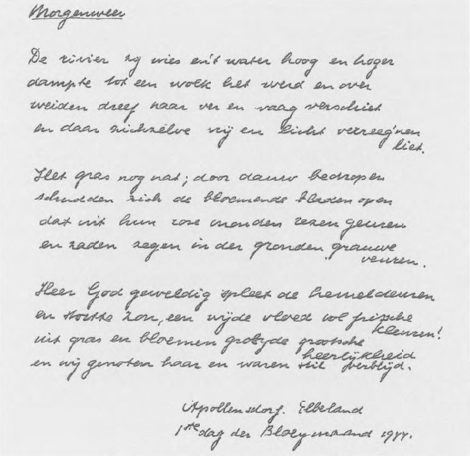 Morgenweer
De rivier zy wies en't water hoog en hoger
dampte tot een wolk het werd en over
weiden dreef naar ver en vaag verschiet
en daar zichzelve vrij en licht verreeg'nen
liet.
Het gras nog nat; door dauw bedropen
schudden zich de bloemende open
dat uit hun roze monden rezen geuren
en zaden zegen in der gronden grauwe
veuren.
Heer God geweldig spleet de hemeldeuren
en stortte zon, een wijde vloed vol frissche
kleuren!
uit gras en bloemen grootsche
heerlijkheid
en wij genoten haar en waren stil verblijd.
Apollensdorf. Elbeland
1ste dag der Bloeymaand 1944.